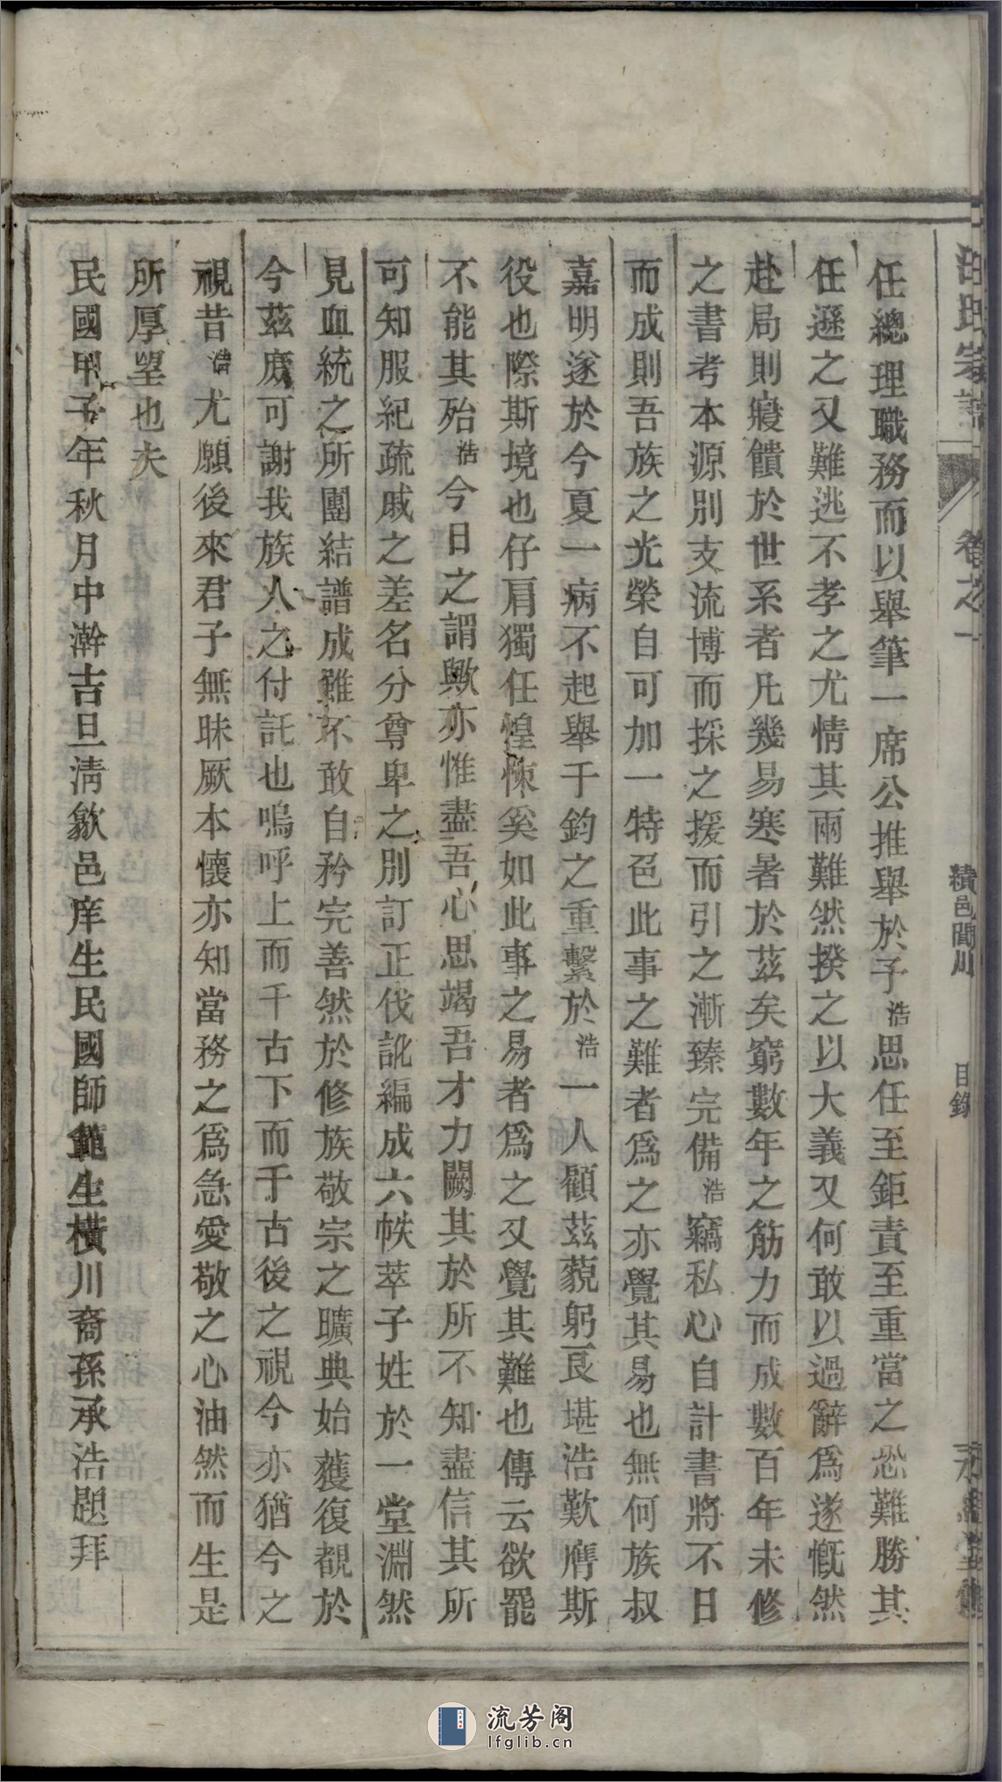 汪氏宗譜
卷之一
績邑閬川
目錄
任總理職務而以舉筆一席公推舉於子浩思任至鉅責至重當之恐難勝其
任遜之又難逃不孝之尤情其兩難然揆之以大義又何敢以過辭爲遂慨然
赴局則寢饋於世系者凡幾易寒暑於茲矣窮數年之筋力而成數百年未修
之書考本源別支流博而採之援而引之漸臻完備浩竊私心自計書將不日
而成則吾族之光榮自可加一特色此事之難者爲之亦覺其易也無何族叔
嘉明遂於今夏一病不起舉于鈞之重繫於浩一人顧茲藐躬艮堪浩歎膺斯
役也際斯境也仔肩獨任惶悚奚如此事之易者爲之又覺其難也傳云欲罷
不能其殆浩今日之謂歟亦惟盡吾心思竭吾才力闕其於所不知盡信其所
可知服紀疏戚之差名分尊卑之別訂正伐訛編成六帙萃子姓於一堂淵然
見血統之所團結譜成雖不敢自矜完善然於修族敬宗之曠典始獲復覩於
今茲庶可謝我族人之付託也嗚呼上而千古下而于古後之視今亦猶今之
視昔浩尤願後來君子無昧厥本懷亦知當務之爲急愛敬之心油然而生是
所厚望也夫
民國甲子年秋月中澣吉旦清歙邑庠生民國師範生橫川裔孫承浩題拜
流芳阁
lfglib.cn